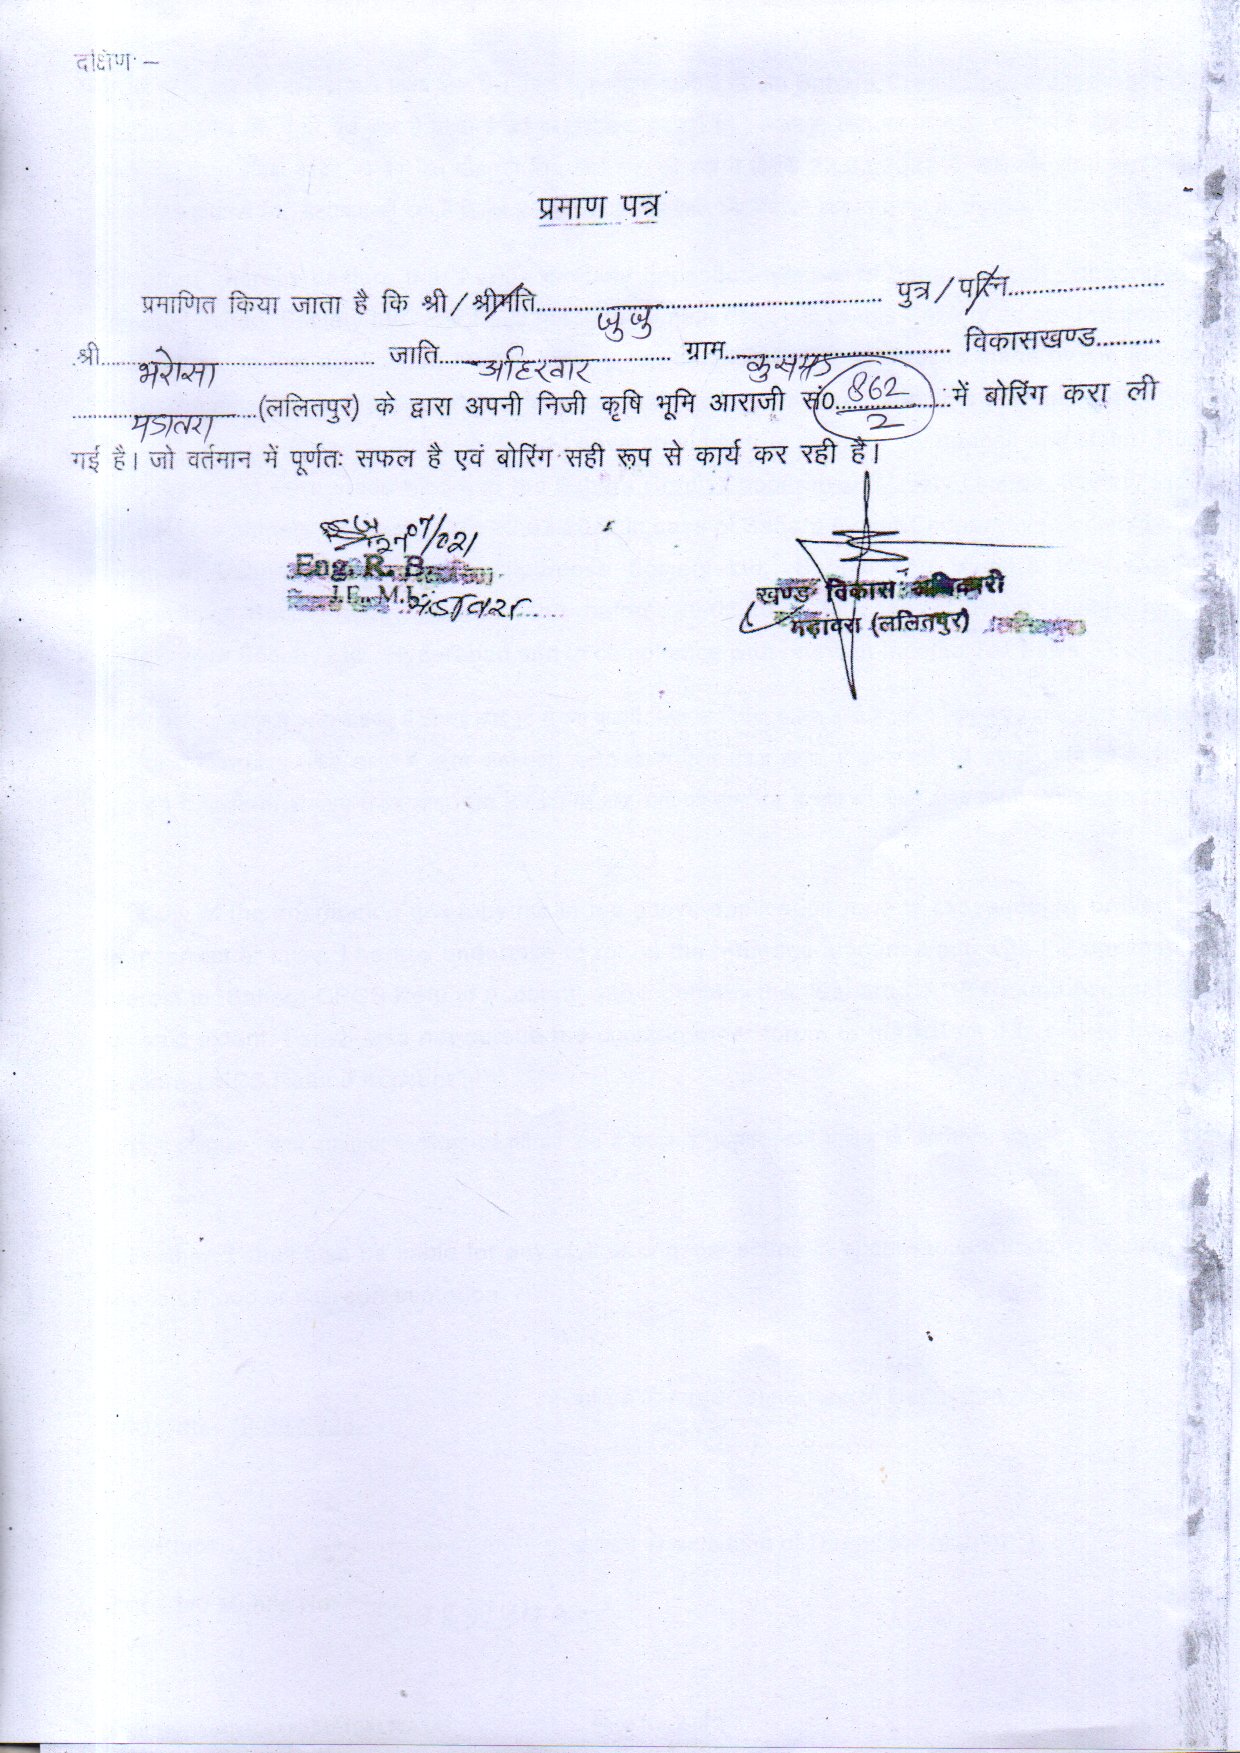 दक्षिण:–
प्रमाण पत्र
प्रमाणित किया जाता है कि श्री / श्रीमति.......... जुजु .......... पुत्र / पत्नि..........
श्री.......... भरोसा .......... जाति.......... अहिरवार .......... ग्राम.......... .......... विकासखण्ड..........
मडावरा ..........(ललितपुर) के द्वारा अपनी निजी कृषि भूमि आराजी सं0.......... 862/2 ..........में बोरिंग करा ली
गई है। जो वर्तमान में पूर्णतः सफल है एवं बोरिंग सही रूप से कार्य कर रही है।
27/07/021
Eng. R. B.
J.E., M.I. मंडावरा
खण्ड विकास अधिकारी
मड़ावरा (ललितपुर)